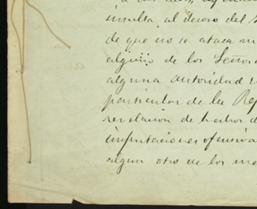 á los
insulta al decoro del
de que no se ataca
alguno de los Señores
alguna autoridad
particular de la Rep
revelacion de hechos d
imputaciones ofensivas
algun otro de los me